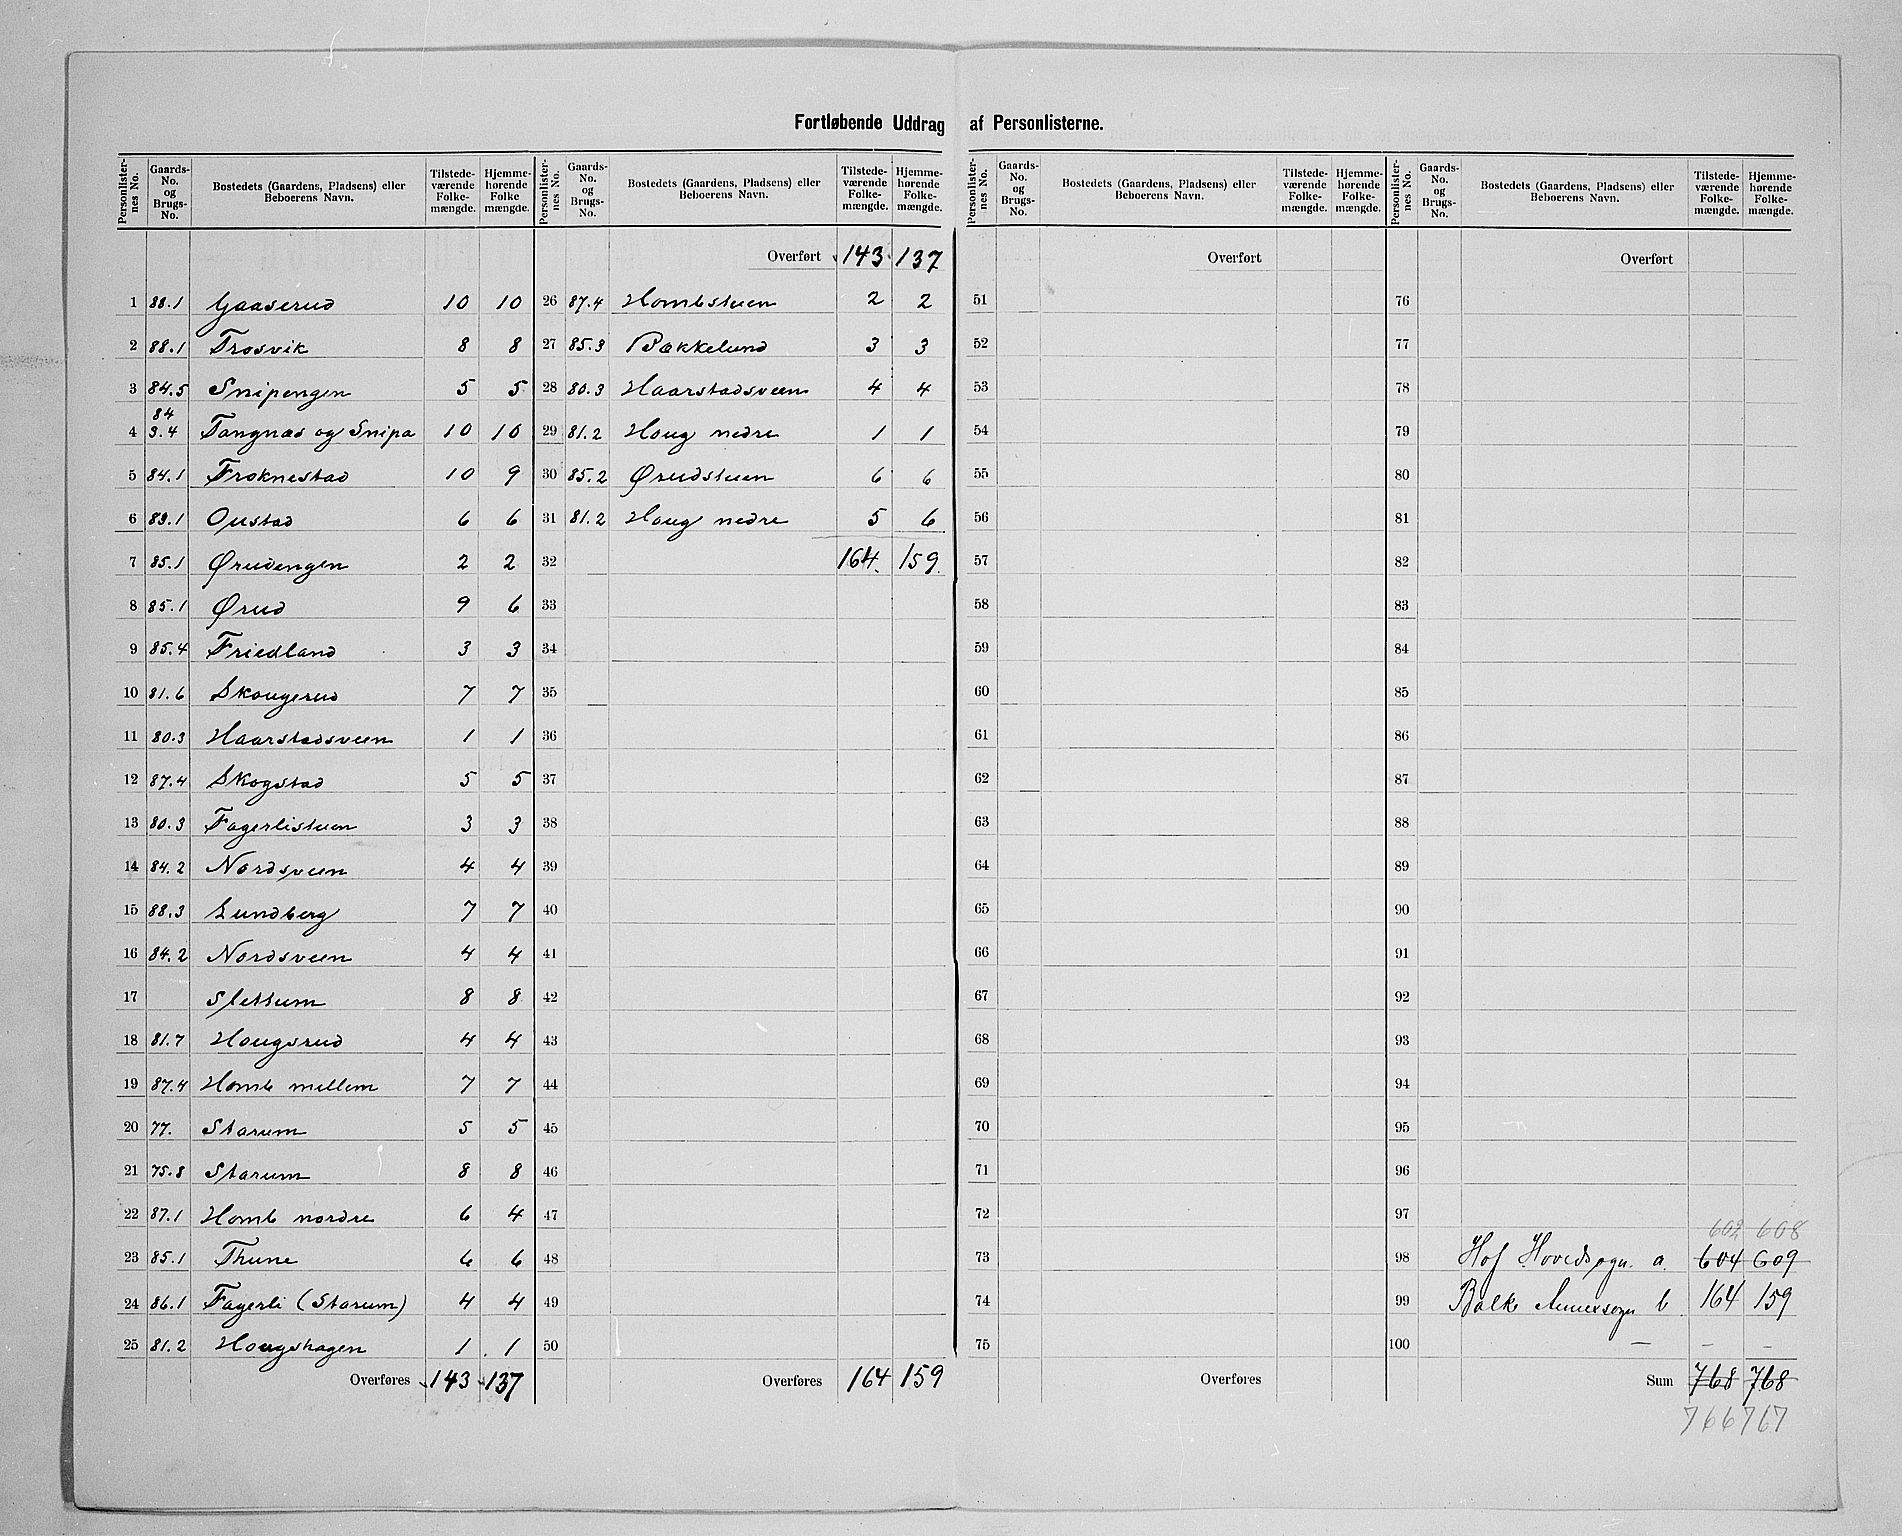 Fortløbende Uddrag af Personlisterne.
Personlisternes No. | Gaards-No. og Brugs-No. | Bostedets (Gaardens, Pladsens) eller Beboerens Navn. | Tilstedeværende Folkemængde. | Hjemmehørende Folkemængde.
1 88.1 Gaaserud 10 10
2 88.1 Trosvik 8 8
3 84.5 Snipengen 5 5
84
4 3.4 Tangnæs og Snipa 10 10
5 84.1 Froknestad 10 9
6 83.1 Oustad 6 6
7 85.1 Ørudengen 2 2
8 85.1 Ørud 9 6
9 85.4 Friedland 3 3
10 81.6 Skougerud 7 7
11 80.3 Haarstadsveen 1 1
12 87.4 Skogstad 5 5
13 80.3 Fagerlistuen 3 3
14 84.2 Nordsveen 4 4
15 88.3 Lundberg 7 7
16 84.2 Nordsveen 4 4
17 Slettum 8 8
18 81.7 Hougsrud 4 4
19 87.4 Homb mellem 7 7
20 77. Starum 5 5
21 75.8 Starum 8 8
22 87.1 Homb nordre 6 4
23 85.1 Thune 6 6
24 86.1 Fagerli (Starum) 4 4
25 81.2 Hougshagen 1 1
Overføres 143 137
Personlisternes No. | Gaards-No. og Brugs-No. | Bostedets (Gaardens, Pladsens) eller Beboerens Navn. | Tilstedeværende Folkemængde. | Hjemmehørende Folkemængde.
Overført 143 137
26 87.4 Hombstuen 2 2
27 85.3 Bækkelund 3 3
28 80.3 Haarstadsveen 4 4
29 81.2 Houg nedre 1 1
30 85.2 Ørudstuen 6 6
31 81.2 Houg nedre 5 6
32 164. 159.
33
34
35
36
37
38
39
40
41
42
43
44
45
46
47
48
49
50
Overføres 164 159
Personlisternes No. | Gaards-No. og Brugs-No. | Bostedets (Gaardens, Pladsens) eller Beboerens Navn. | Tilstedeværende Folkemængde. | Hjemmehørende Folkemængde.
Overført
51
52
53
54
55
56
57
58
59
60
61
62
63
64
65
66
67
68
69
70
71
72
73
74
75
Overføres
Personlisternes No. | Gaards-No. og Brugs-No. | Bostedets (Gaardens, Pladsens) eller Beboerens Navn. | Tilstedeværende Folkemængde. | Hjemmehørende Folkemængde.
Overført
76
77
78
79
80
81
82
83
84
85
86
87
88
89
90
91
92
93
94
95
96
97
602 608
98 Hof Hovedsogn. a. 604 609
99 Balke Annexsogn b 164 159
100 — – –
Sum 768 768
766 767